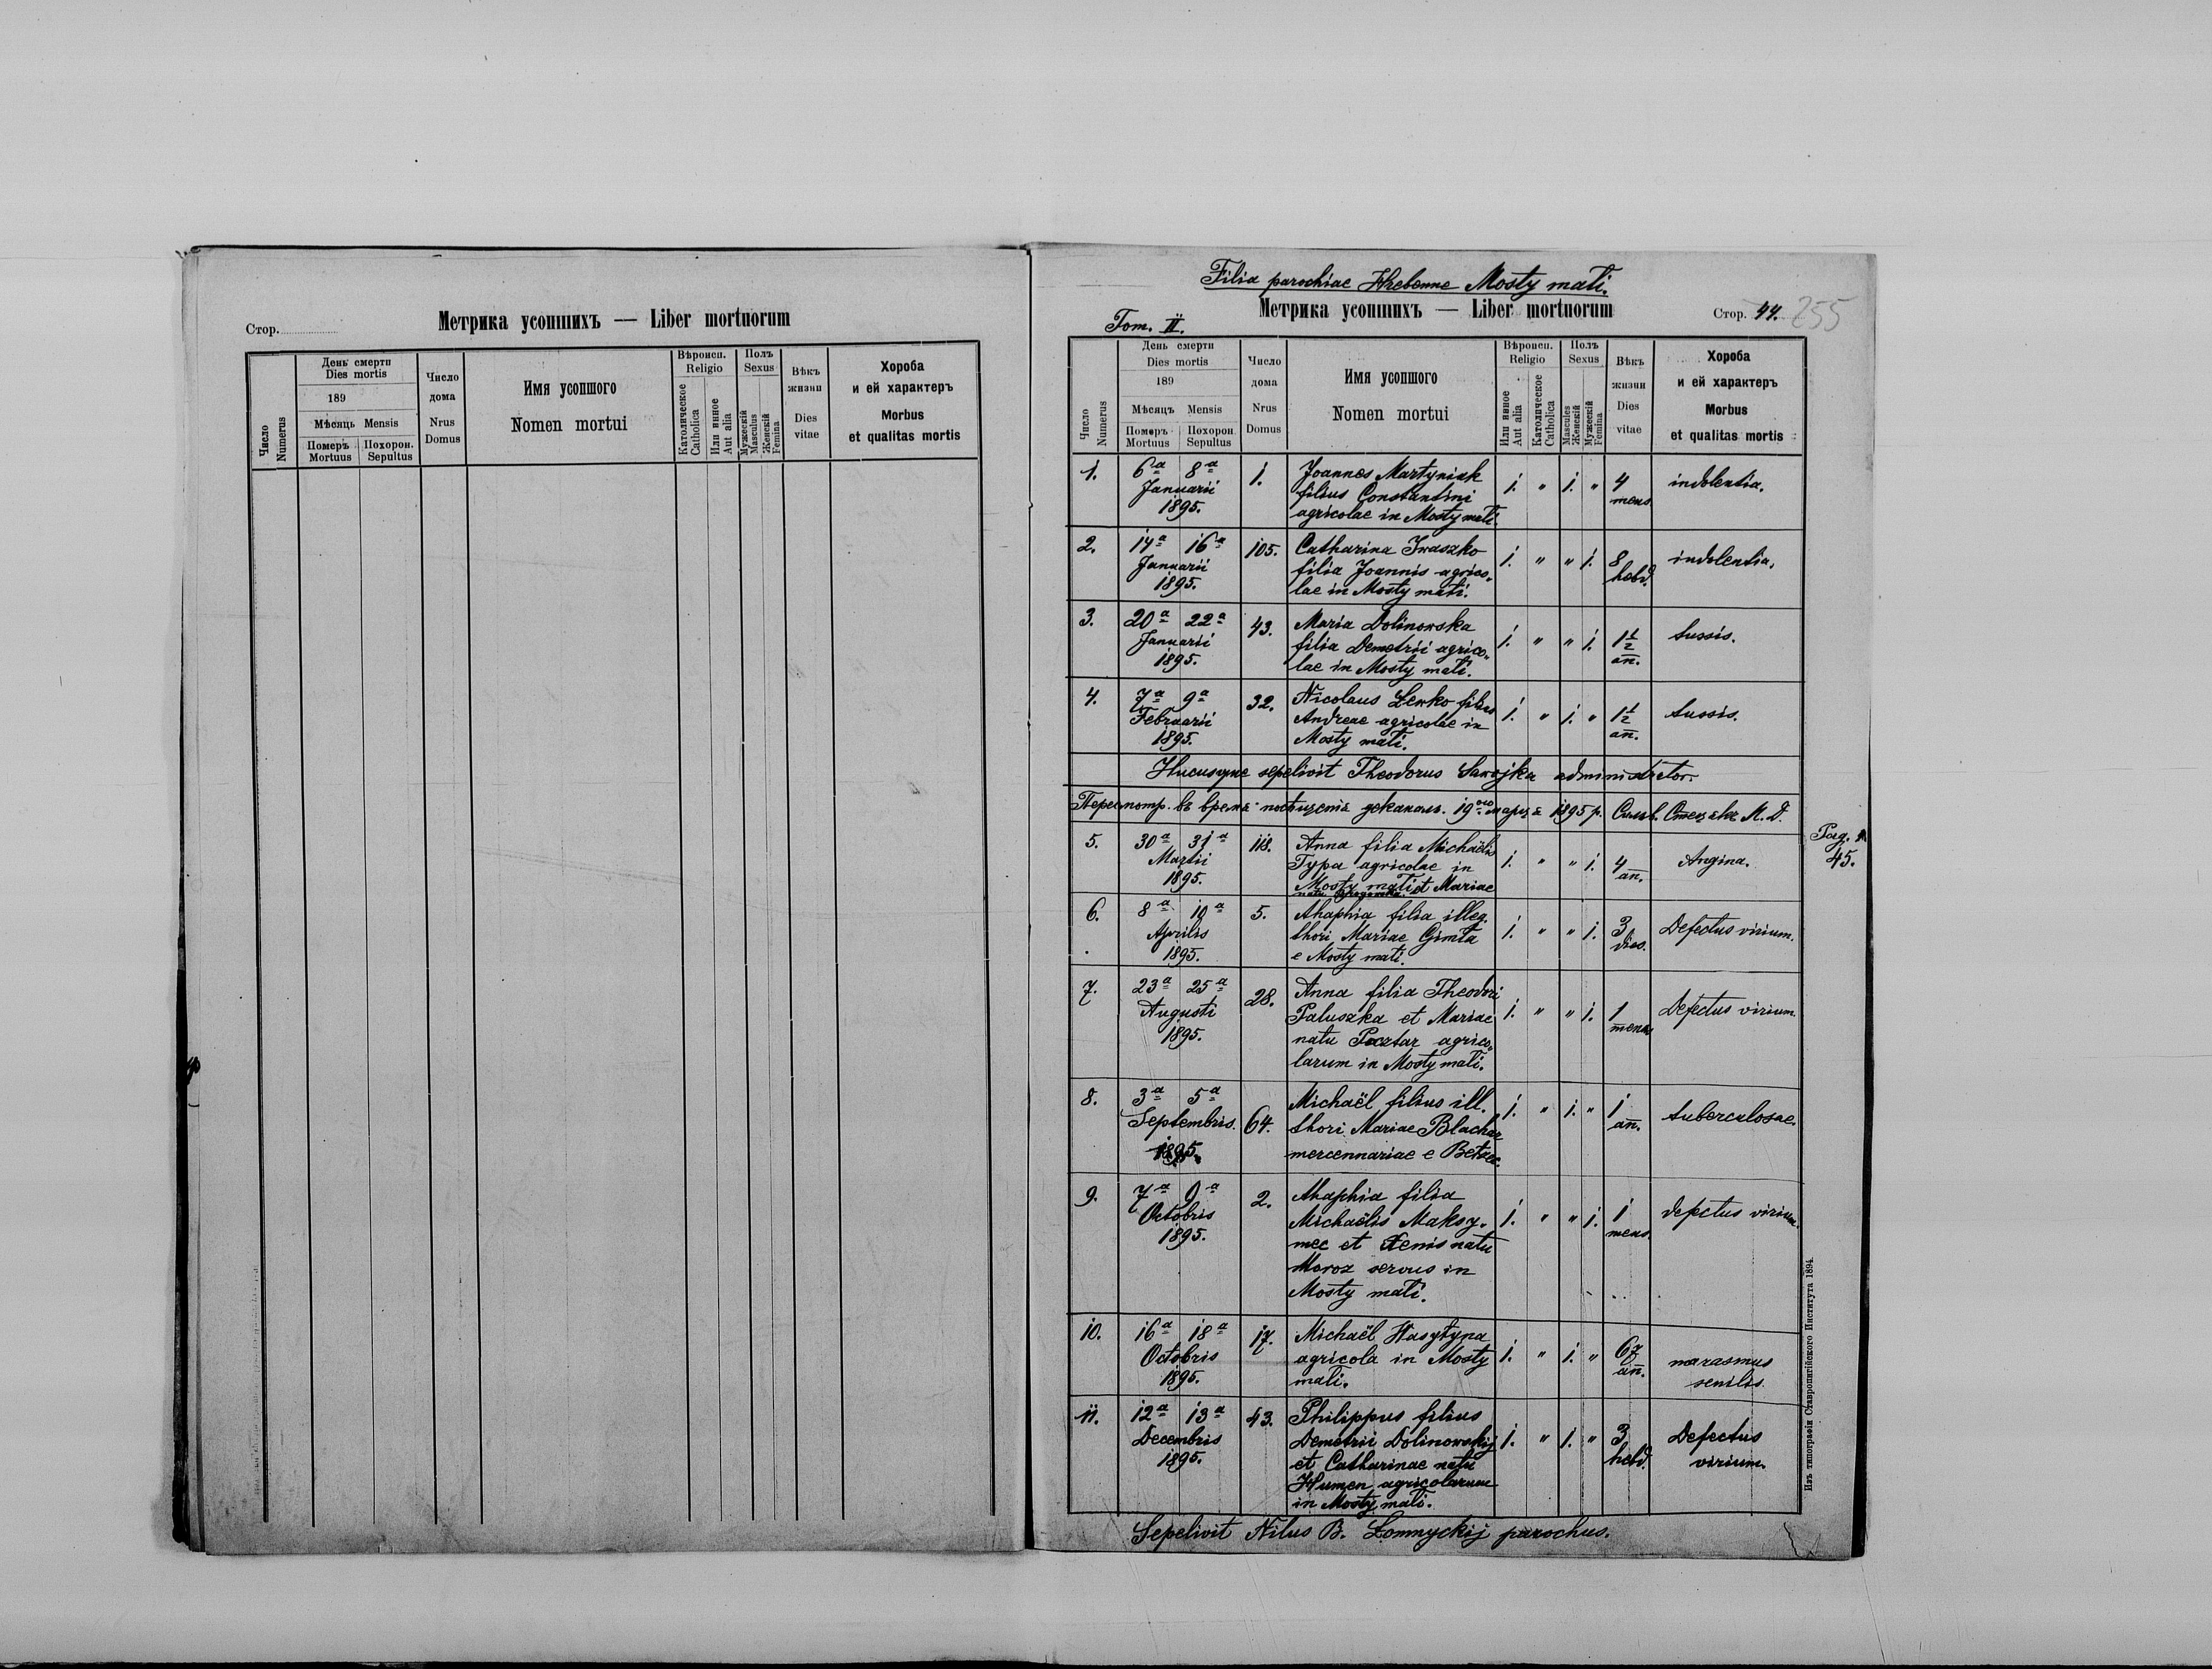 Стор.
Метрика усопшихъ — Liber mortuorum
Число
Numerus
День смерти
Dies mortis
189
Мѣсяць Mensis
Померъ Похорон.
Mortuus Sepultus
Число
дома
Nrus
Domus
Имя усопшого
Nomen mortui
Вѣроисп.
Religio
Католическое
Catholica
Или инное
Aut alia
Полъ
Sexus
Мужескій
Masculus
Женскій
Femina
Вѣкъ
жизни
Dies
vitae
Хороба
и ей характеръ
Morbus
et qualitas mortis
Filia parochiae Hrebenne Mosty małi.
Метрика усопшихъ — Liber mortuorum
Стор. 44. 255
Tom. II.
Число
Numerus
День смерти
Dies mortis
189
Мѣсяцъ Mensis
Померъ Похорон
Mortuus Sepultus
Число
дома
Nrus
Domus
Имя усопшого
Nomen mortui
Вѣроисп.
Religio
Или инное
Aut alia
Католическое
Catholica
Полъ
Sexus
Mascules
Женскій
Мужескій
Femina
Вѣкъ
жизни
Dies
vitae
Хороба
и ей характеръ
Morbus
et qualitas mortis
1. 6a 8a 1. Joannes Martyniak 1. " 1. " 4 indolentia.
Januarii filius Constantini mens.
1895. agricolae in Mosty małi.
2. 14a 16a 105. Catharina Iwaszko 1. " " 1. 8 indolentia.
Januarii filia Joannis agrico- hebd.
1895. lae in Mosty małi.
3. 20a 22a 43. Maria Dolinowska 1. " " 1. 1 1/2 tussis.
Januarii filia Demetrii agrico- an.
1895. lae in Mosty małi.
4. 7a 9a 32. Nicolaus Lewko filius 1. " 1. " 1 1/2 tussis.
Februarii Andreae agricolae in an.
1895. Mosty małi.
Hucusque sepelivit Theodorus administrator.
въ время 19 марца 1895 р.
5. 30a 31a 118. Anna filia Michaëlis 1. " " 1. 4 Angina.
Martii Typa agricolae in an.
1895. Mosty małi et Mariae
natu
Pag.
45.
6. 8a 10a 5. Ahaphia filia illeg. 1. " " 1. 3 Defectus virium.
Aprilis thori Mariae Gimta dies.
1895. e Mosty małi.
7. 23a 25a 28. Anna filia Theodori 1. " " 1. 1 Defectus virium.
Augusti Paluszka et Mariae mens.
1895. natu Pocztar agrico-
larum in Mosty małi.
8. 3a 5a 64. Michaël filius ill. 1. " 1. " 1 tuberculosae.
Septembris. thori Mariae Blachar an.
1895. mercennariae e Bełzec.
9. 7a 9a 2. Ahaphia filia 1. " " 1. 1 defectus virium.
Octobris Michaëlis Maksy- mens.
1895. mec et Xenis natu
Moroz servus in
Mosty małi.
10. 16a 18a 17. Michaël Wasyłyna 1. " 1. " 67 marasmus
Octobris agricola in Mosty an. senilis.
1895. małi.
11. 12a 13a 43. Philippus filius 1. " 1. " 3 Defectus
Decembris Demetrii Dolinowskij hebd. virium.
1895. et Catharinae natu
Humen agricolarum
in Mosty małi.
Sepelivit Nilus B. Łomnyckij parochus.
Изъ типографіи Ставропигійского Института 1894